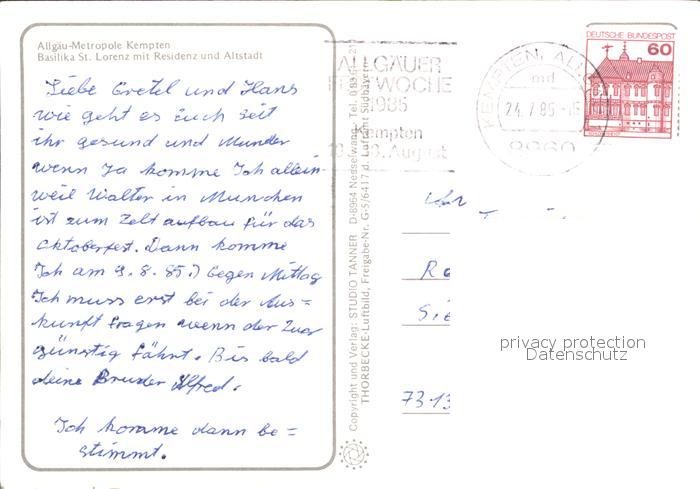 Allgäu-Metropole Kempten
Basilika St. Lorenz mit Residenz und Altstadt
Liebe Gretel und Hans
wie geht es Euch seit
ihr gesund und Munder
wenn Ja komme Ich allein
weil Walter in München
ist zum Zelt aufbau für das
Oktoberfest. Dann komme
Ich am 9.8.85.) Gegen Mittag
Ich muss erst bei der Aus=
kunft fragen wenn der Zug
günstig fährt. Bis bald
deine Bruder Alfred.
Ich komme dann be=
stimmt.
Copyright und Verlag: STUDIO TANNER D-8964 Nesselwang
THORBECKE-Luftbild, Freigabe-Nr. G-5/6417 d. Luftamt Südbayern
ALLGÄUER
FESTWOCHE
1985
Kempten
August
KEMPTEN, ALLG
md
24.7.85-15
8960
DEUTSCHE BUNDESPOST
60
Si
7313
privacy protection
Datenschutz